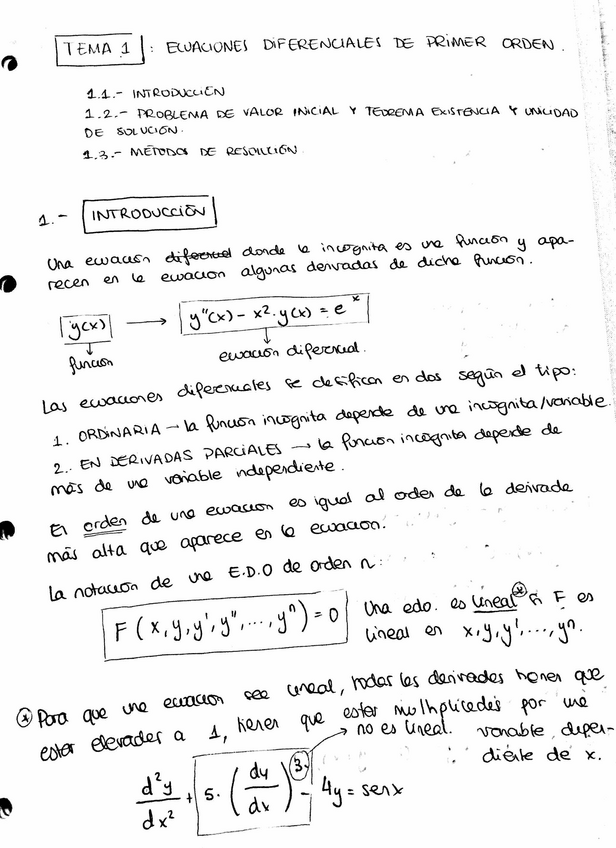 TEMA 1 : ECUACIONES DIFERENCIALES DE PRIMER ORDEN.
1.1.- INTRODUCCIÓN
1.2.- PROBLEMA DE VALOR INICIAL Y TEOREMA EXISTENCIA Y UNICIDAD
DE SOLUCIÓN.
1.3.- METODOS DE RESOLUCIÓN
1.- INTRODUCCIÓN
Una ecuación diferencial donde la incognita es una función y apa-
recen en la ecuacion algunas derivadas de dicha función.
y(x) → y''(x) - x²·y(x) = e^x
función ecuación diferencial.
Las ecuaciones diferenciales se clasifican en dos según el tipo:
1. ORDINARIA → la función incógnita depende de una incognita/variable.
2. EN DERIVADAS PARCIALES → la función incógnita depende de
más de una variable independiente.
El orden de una ecuacion es igual al orden de la derivada
más alta que aparece en la ecuacion.
La notación de una E.D.O de orden n:
F(x, y, y', y'', ..., yⁿ) = 0 Una edo. es lineal* si F es
lineal en x, y, y', ..., yⁿ.
* Para que una ecuacion sea lineal, todas las derivadas tienen que
estar elevadas a 1, tienen que estar multiplicadas por una
→ no es lineal. variable depen-
diente de x.
d²y/dx² + 5·(dy/dx)³ - 4y = senx